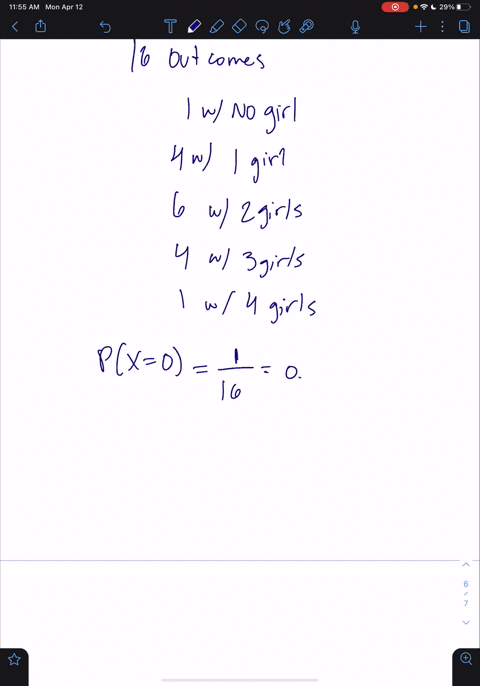 11:55 AM Mon Apr 12
29%
16 outcomes
1 w/ No girl
4 w/ 1 girl
6 w/ 2 girls
4 w/ 3 girls
1 w/ 4 girls
P(X=0) = 1/16 = 0.
6
7